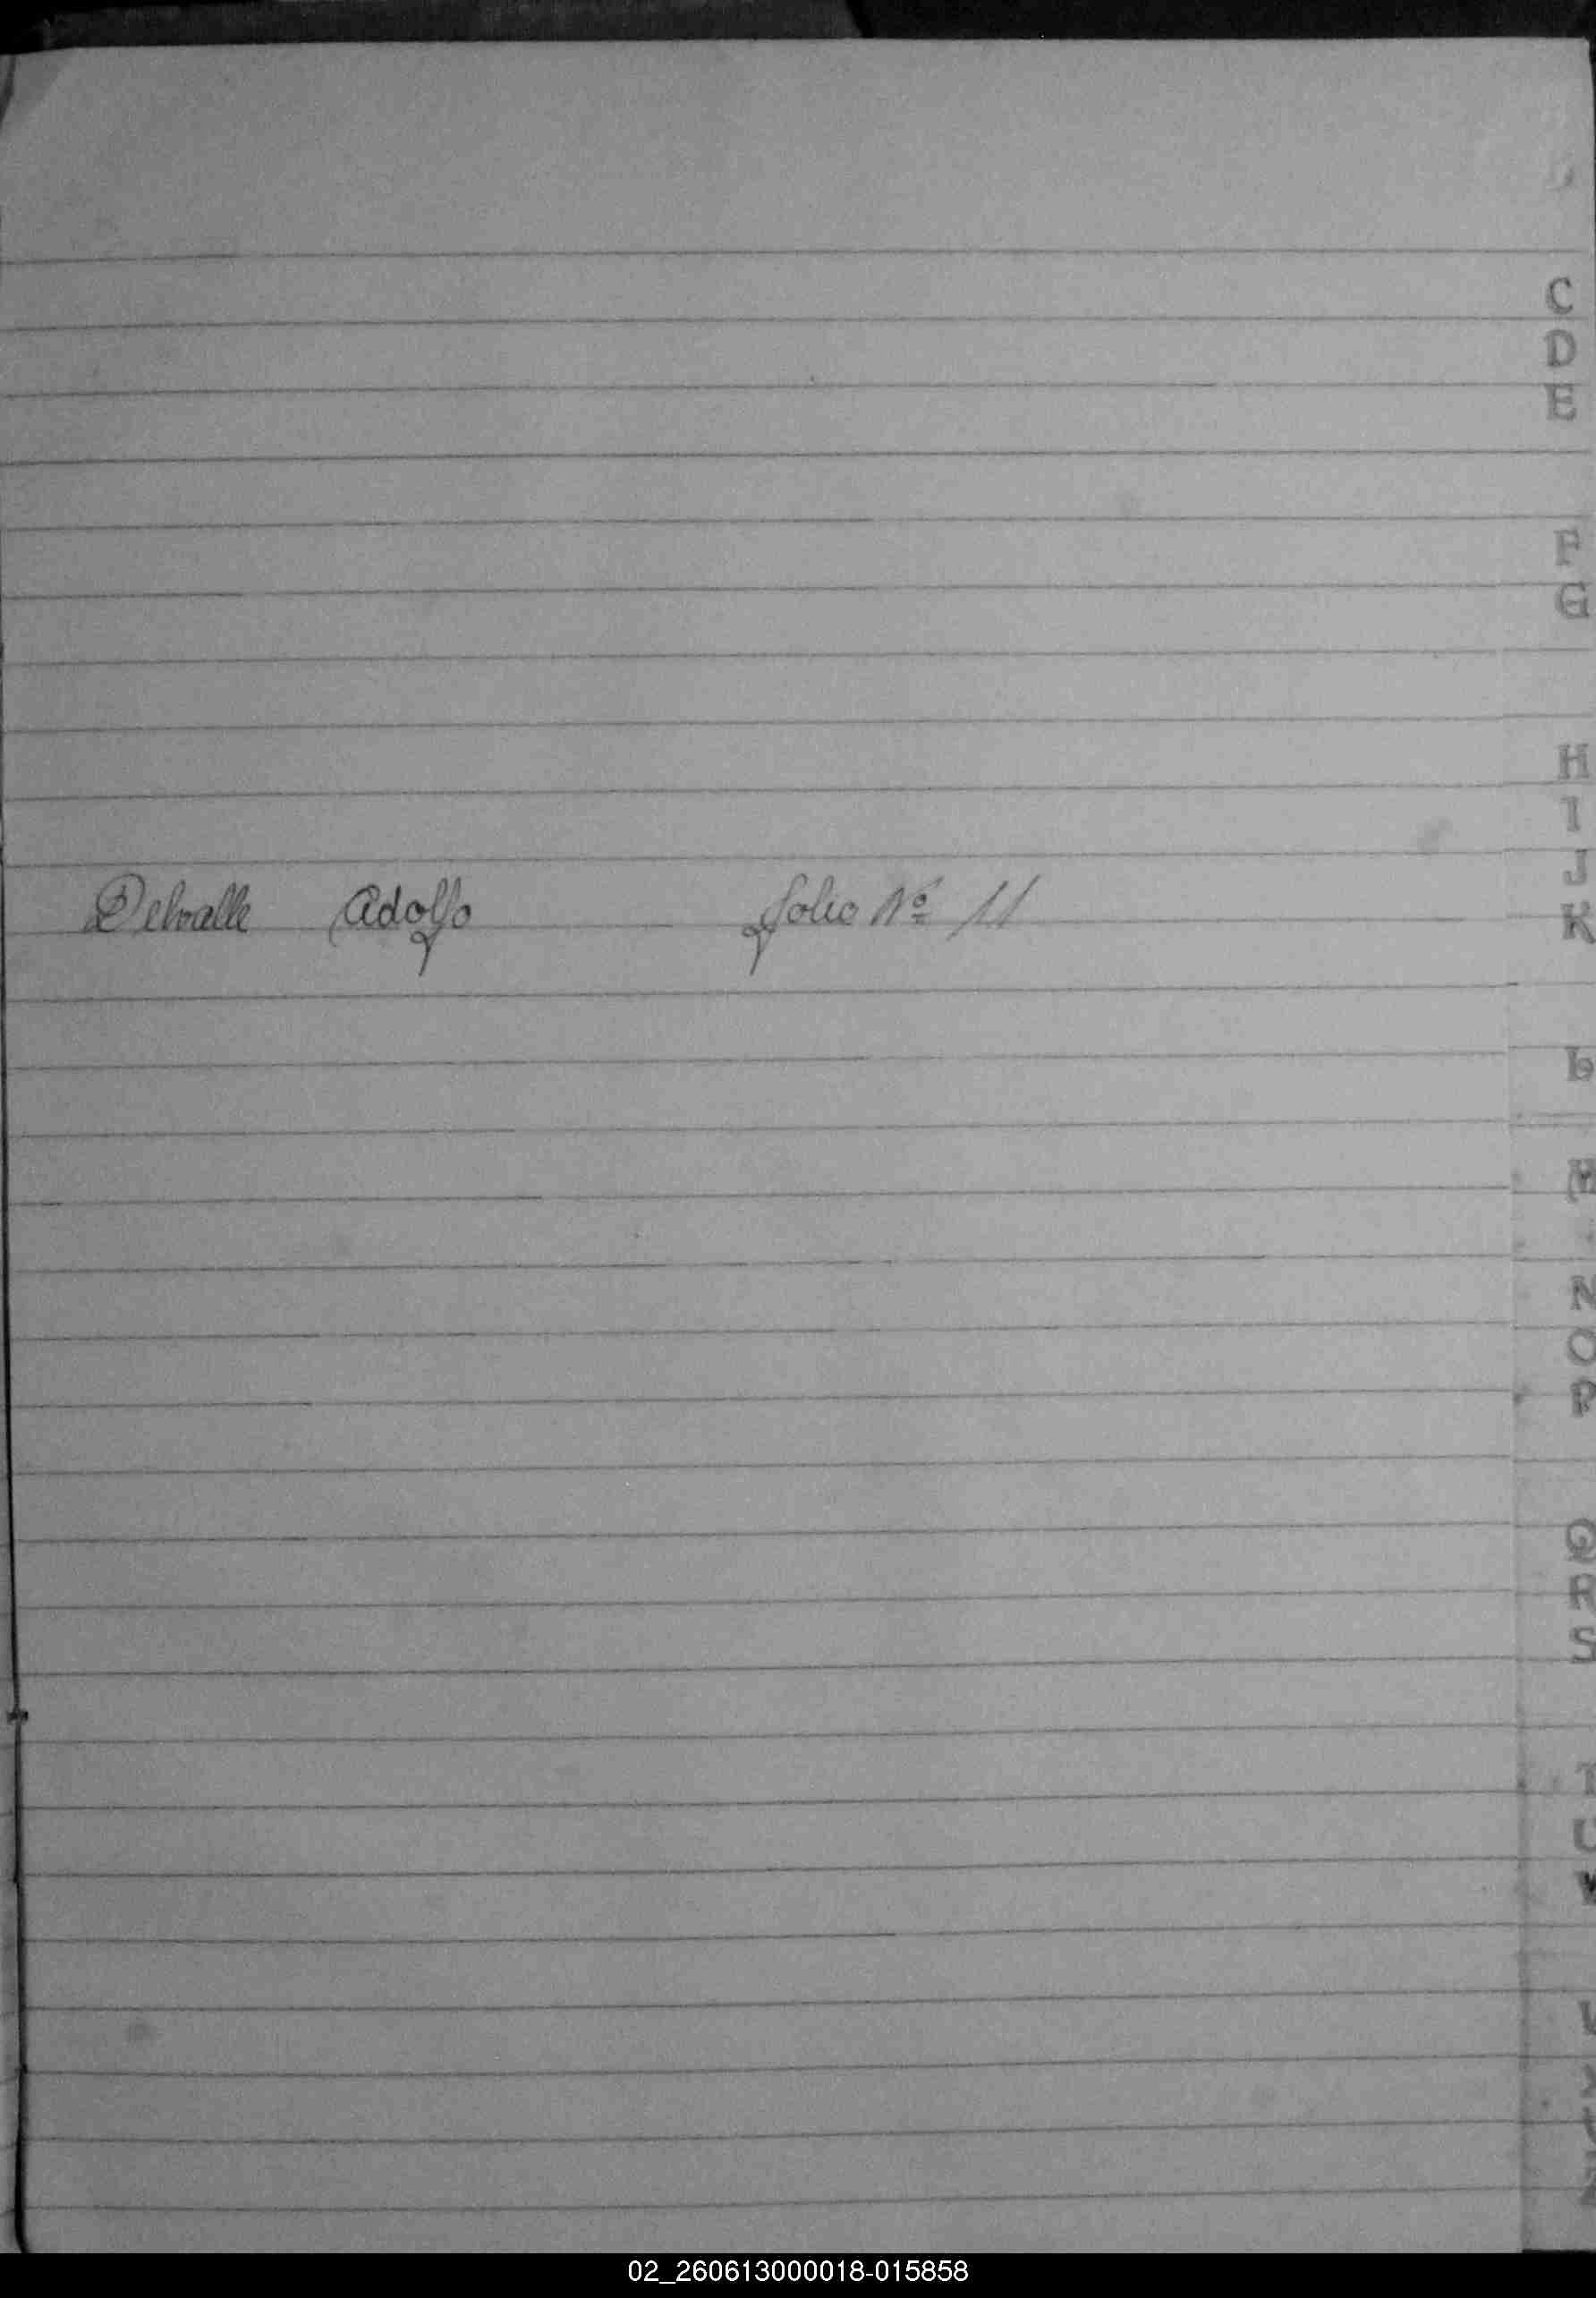 C
D
E
F
G
H
I
J
K
Delvalle Adolfo folio Nº 11
L
M
N
O
P
Q
R
S
T
U
V
02_260613000018-015858